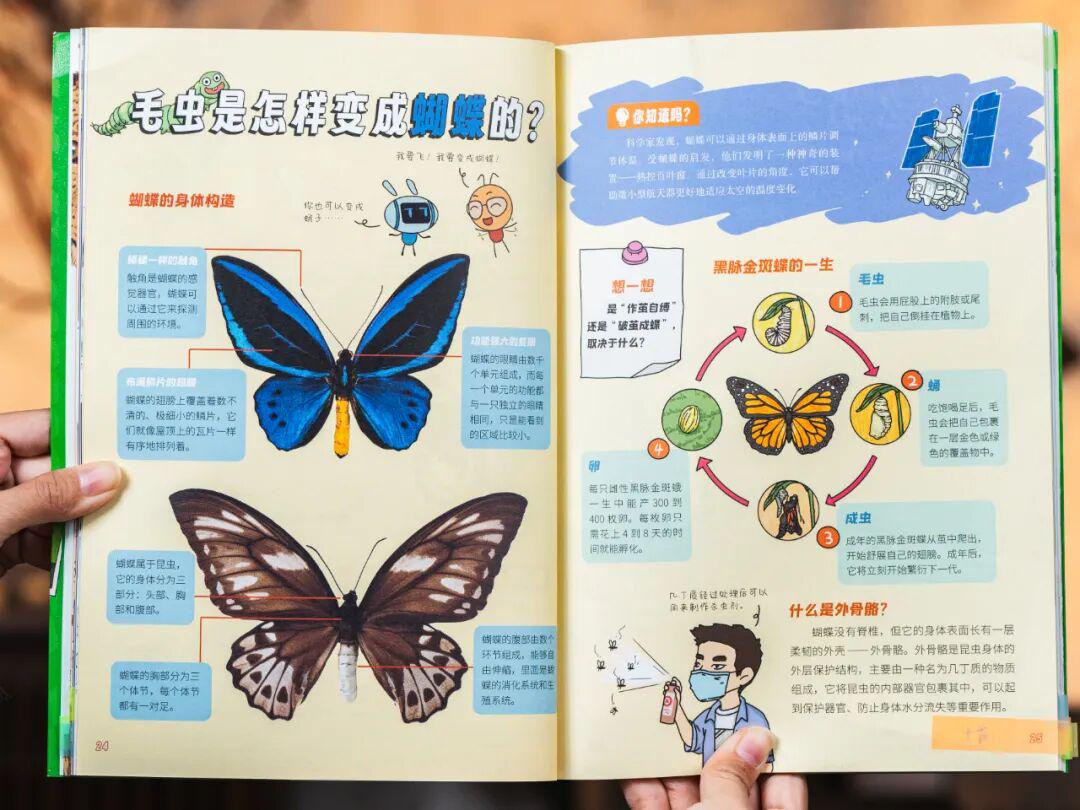 毛虫是怎样变成蝴蝶的?
我要飞!我要变成蝴蝶!
蝴蝶的身体构造
你也可以变成
蛾子……
触角是蝴蝶的感
觉器官,蝴蝶可
以通过它来探测
周围的环境。
布满鳞片的翅膀
蝴蝶的翅膀上覆盖着数不
清的、极细小的鳞片,它
们就像屋顶上的瓦片一样
有序地排列着。
功能强大的复眼
蝴蝶的眼睛由数千
个单元组成,而每
一个单元的功能都
与一只独立的眼睛
相同,只是能看到
的区域比较小。
蝴蝶属于昆虫,
它的身体分为三
部分:头部、胸
部和腹部。
蝴蝶的胸部分为三
个体节,每个体节
都有一对足。
蝴蝶的腹部由数个
环节组成,能够自
由伸缩,里面是蝴
蝶的消化系统和生
殖系统。
24
你知道吗?
科学家发现,蝴蝶可以通过身体表面上的鳞片调
节体温。受蝴蝶的启发,他们发明了一种神奇的装
置——热控百叶窗。通过改变叶片的角度,它可以帮
助微小型航天器更好地适应太空的温度变化。
想一想
是“作茧自缚”
还是“破茧成蝶”,
取决于什么?
黑脉金斑蝶的一生
1
毛虫
毛虫会用屁股上的附肢或尾
刺,把自己倒挂在植物上。
2
蛹
吃饱喝足后,毛
虫会把自己包裹
在一层金色或绿
色的覆盖物中。
3
成虫
成年的黑脉金斑蝶从茧中爬出,
开始舒展自己的翅膀。成年后,
它将立刻开始繁衍下一代。
4
卵
每只雌性黑脉金斑蛾
一生中能产300到
400枚卵。每枚卵只
需花上4到8天的时
间就能孵化。
几丁质经过处理后可以
用来制作杀虫剂。
什么是外骨骼?
蝴蝶没有脊椎,但它的身体表面长有一层
柔韧的外壳——外骨骼。外骨骼是昆虫身体的
外层保护结构,主要由一种名为几丁质的物质
组成,它将昆虫的内部器官包裹其中,可以起
到保护器官、防止身体水分流失等重要作用。
25